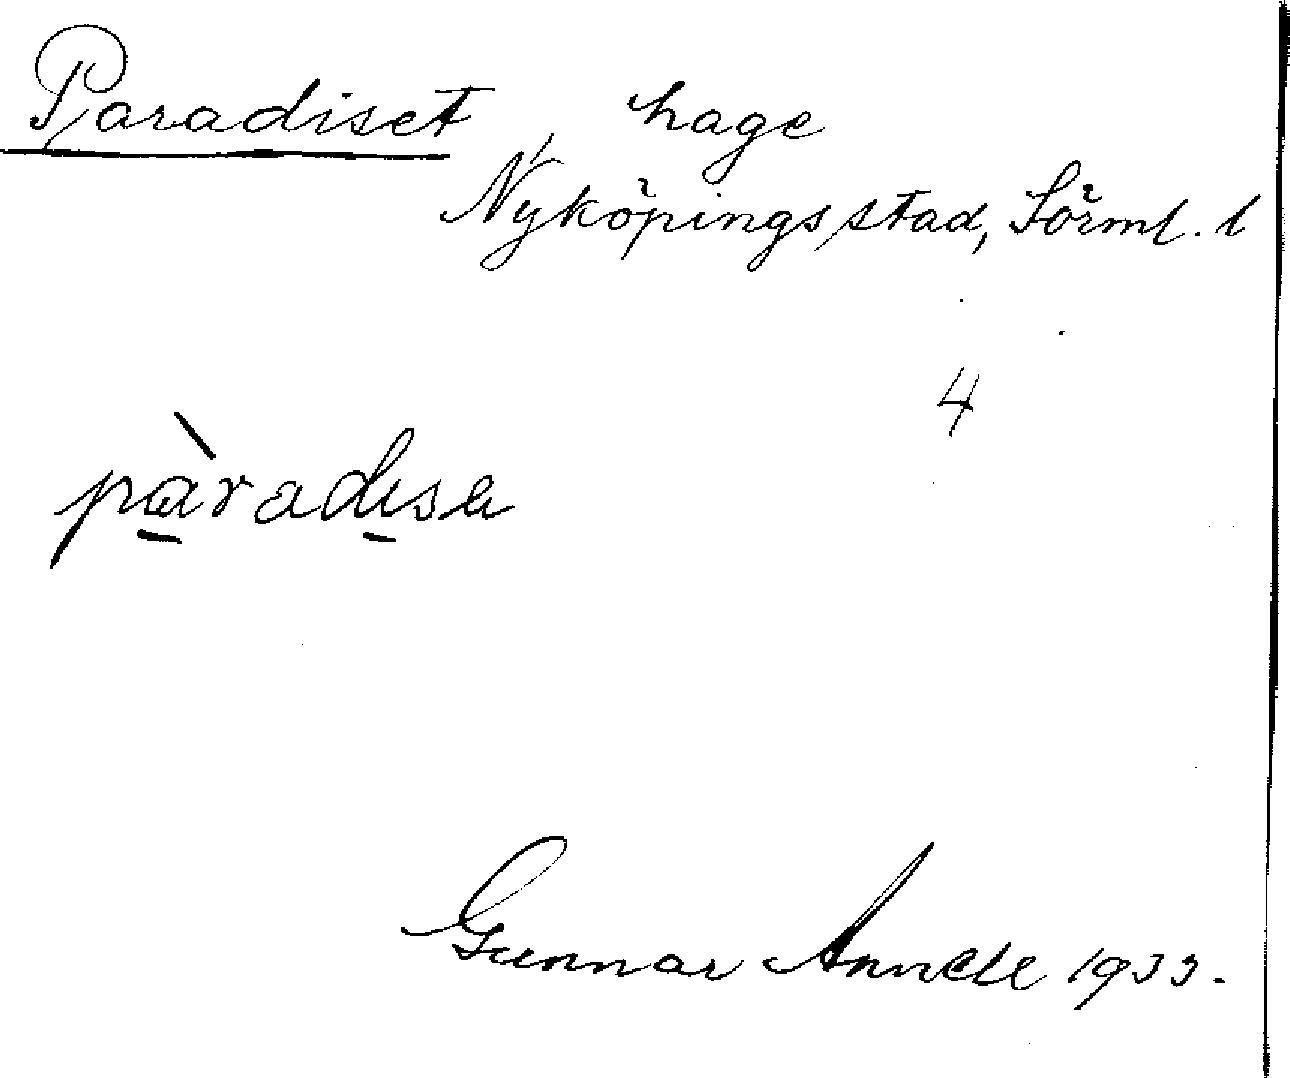 Paradiset, hage
Nyköpings stad, Sörml. l
4
pàradisa
Gunnar 1933.